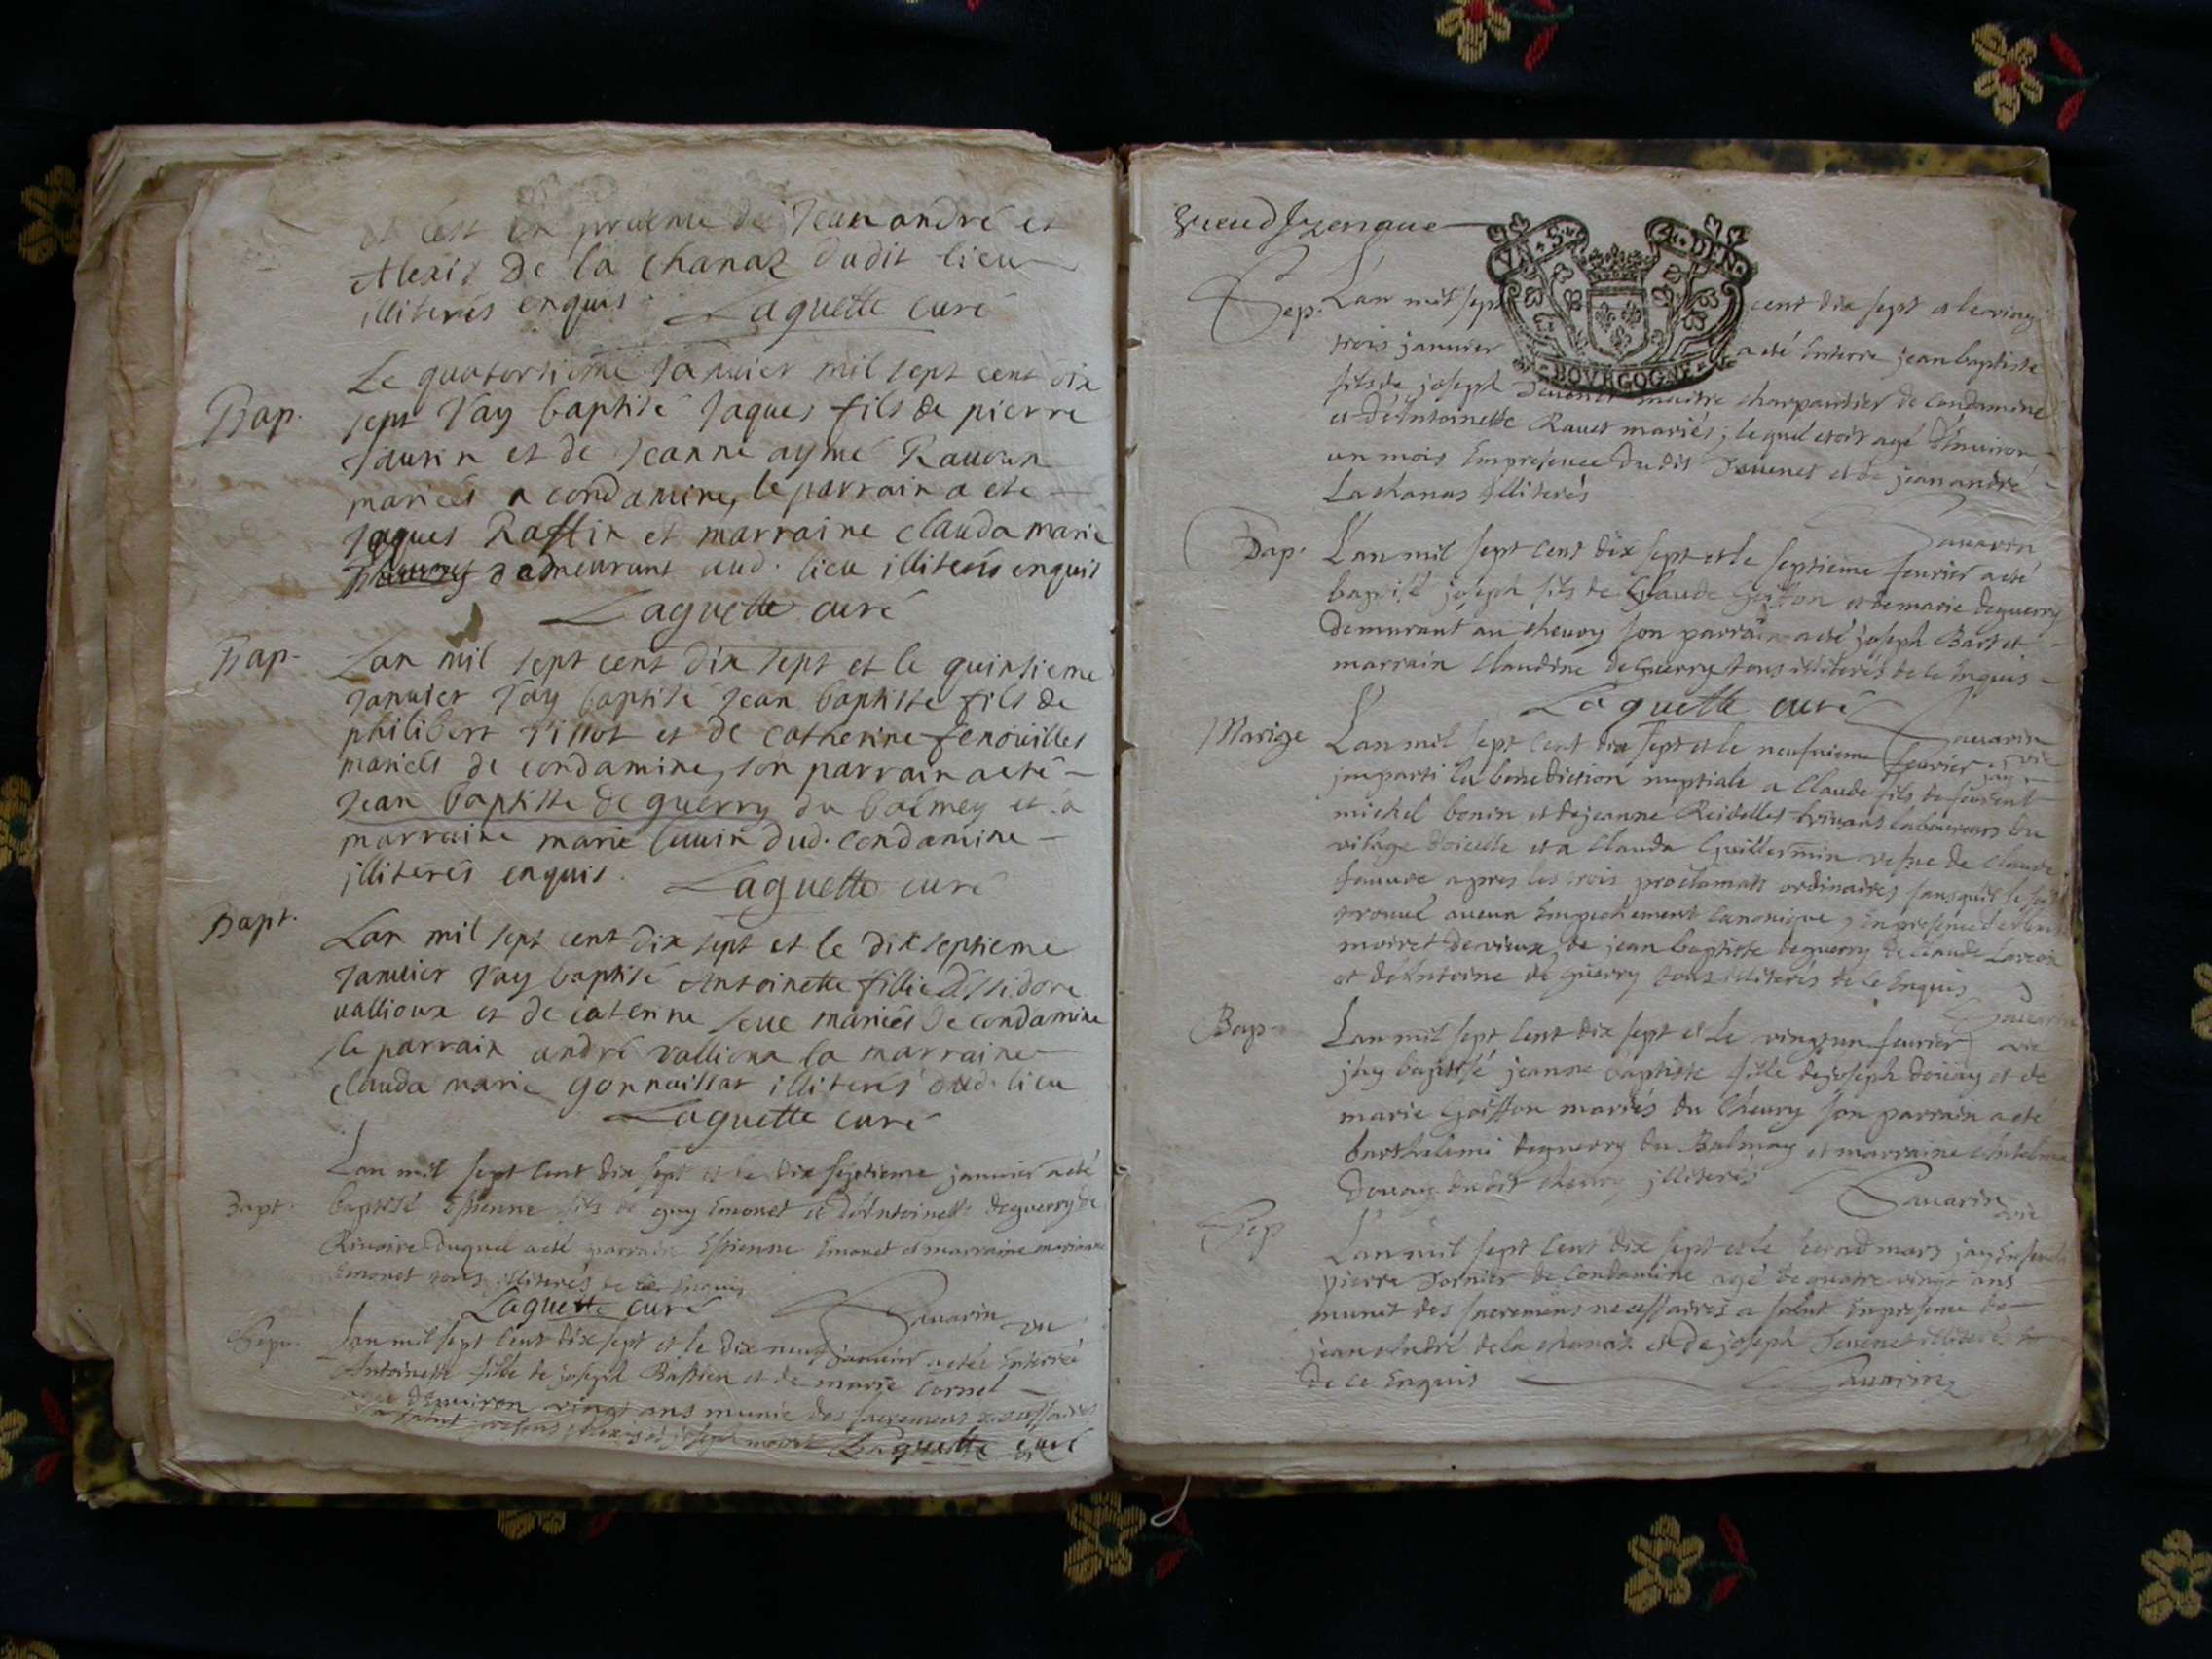 et c'est en presence de Jean andré et
Alexis De la Chanaz dudit lieu
illiterés enquis Laguette curé
Bap.
Le quatorsieme Janvier mil sept cent dix
sept J'ay baptisé Jaques fils de pierre
et de Jeanne aymé Ravoux
mariés a condamine, le parrain a ete
Jaques Raffin et marraine clauda marie
demeurant aud. lieu illiterés enquis
Laguette curé
Bap.
Lan mil sept cent dix sept et le quinsieme
Janvier J'ay baptisé Jean baptiste fils de
philibert et de catherine fenoüilles
mariés de condamine, son parrain a eté
Jean baptiste de guerry du balmey et a
marraine marie dud. condamine
illiterés enquis. Laguette curé
Bapt.
Lan mil sept cent dix sept et le dix septieme
Janvier J'ay baptisé Antoinette fillie d'Issidore
vallioux et de caterine seve mariés de condamine
le parrain andré vallioux la marraine
clauda marie gonnuillat illiterés dud. lieu
Laguette curé
Bapt.
Lan mil sept cent dix sept et le dix septieme janvier a eté
baptisé Estienne fils de guy Emonet et d'Antoinette deguerry de
Rivoire duquel a eté parrain Estienne Emonet et marraine marianne
Emonet tous illiterés de ce Enquis
Laguette curé Savarin vic
Sepu.
Lan mil sept cent dix sept et le dix neuf janvier a etée Enterrée
Antoinette fille de joseph Bastien et de marie Cornel
agée d'Environ vingt ans munie des sacremens necessaires
a salut Laguette curé
Sep.
L'an mil sept cent dix sept a le vingt
trois janvier a eté Enterre jean baptiste
fils de joseph Jevenet maitre charpantier de Condamine
et d'Antoinette Ravet mariés; lequel etoit agé d'Environ
un mois En presence dudit Jevenet et de jean andré
Lachanas illiterés
Savarin
Bap.
L'an mil sept cent dix sept et le septieme fevrier a eté
baptisé joseph fils de Claude Goiffon et de marie deguerry
demurant au chevry son parrain a eté joseph Bast et
marrain Claudine deguerry tous illiterés de ce Enquis
Laguette curé Savarin vic
Marige
L'an mil sept cent dix sept et le neufvieme fevrier jay
imparti la benediction nuptiale a Claude fils de
michel bonin et de jeanne Reidellet laboureurs du
vilage et a Clauda Guillermin vefve de Claude
favvre apres les trois proclamats ordinaires sans quil se soit
trouvé aucun Empechement Canonique, En presence
moiret devieux, de jean baptiste deguerry de Claude
et d'Antoine de guerry tous illiterés de ce Enquis
Savarin vic
Bap
L'an mil sept cent dix sept et le vingt un fevrier
j'ay baptisé jeanne baptiste fille de joseph doüay et de
marie Goiffon mariés du Chevry son parrain a eté
barthelemi deguerry du Balmay et marraine Antelma
Doüay dudit chevry illiterés
Savarin vic
Sep
L'an mil sept cent dix sept et le second mars jay Enseveli
pierre Jornier de Condamine agé de quatre vingt ans
munit des sacremens necessaires a salut En presence de
jean André de la chanaz et de joseph Jevenet illiterés
de ce Enquis Savarin
VN S 4 DEN
BOVRGOGNE